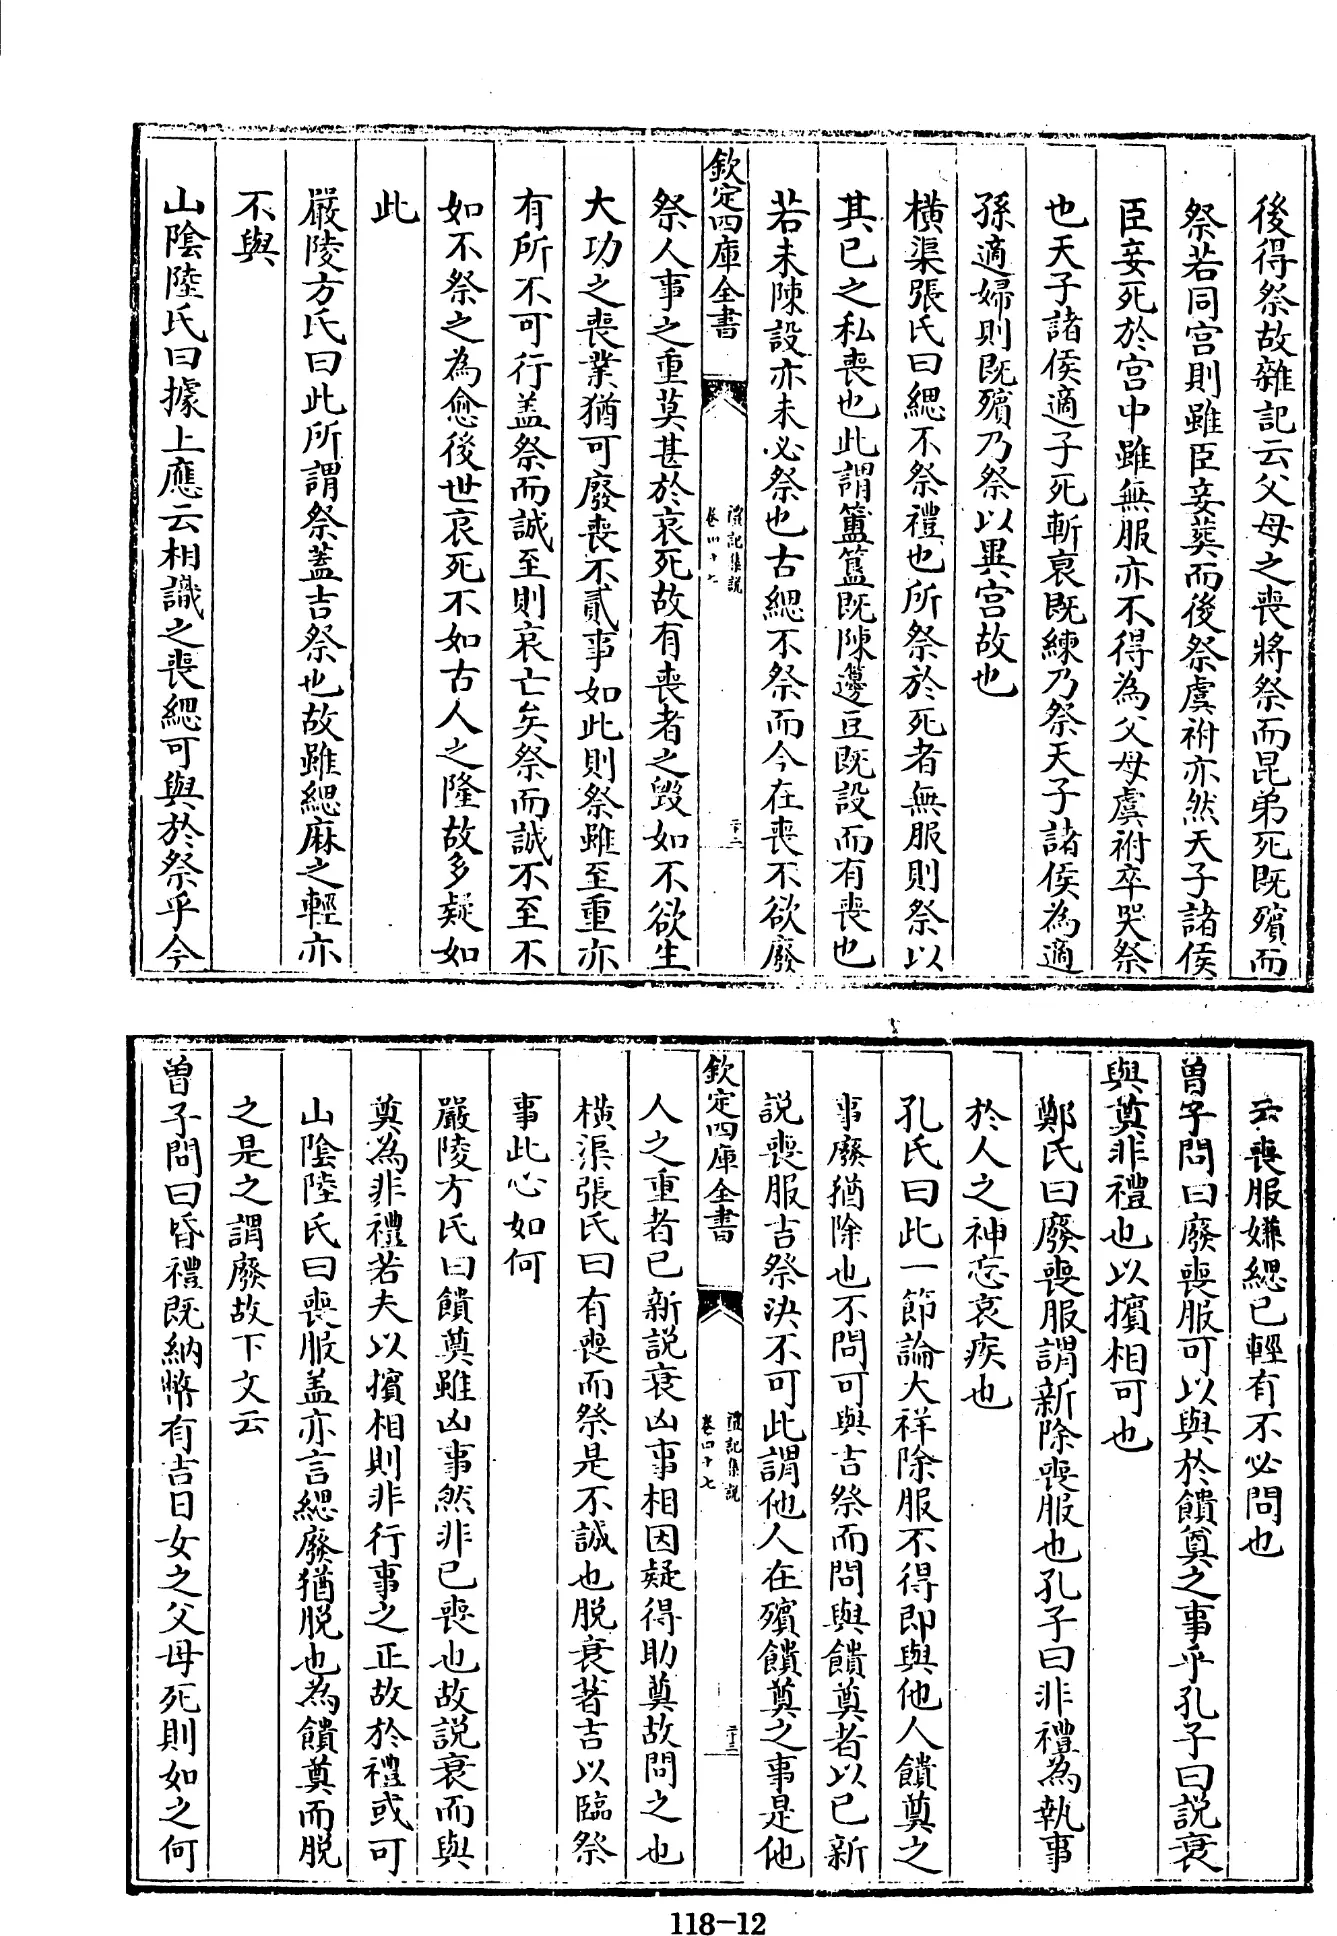 後得祭故雜記云父母之喪將祭而昆弟死既殯而
祭若同宫則雖臣妾葬而後祭虞祔亦然天子諸侯
臣妾死於宫中雖無服亦不得為父母虞祔卒哭祭
也天子諸侯適子死斬衰既練乃祭天子諸侯為適
孫適婦則既殯乃祭以異宫故也
横渠張氏曰緦不祭禮也所祭於死者無服則祭以
其己之私喪也此謂簠簋既陳籩豆既設而有喪也
若未陳設亦未必祭也古緦不祭而今在喪不欲廢
欽定四庫全書
禮記集說
卷四十七
二十二
祭人事之重莫甚於哀死故有喪者之毁如不欲生
大功之喪業猶可廢喪不貳事如此則祭雖至重亦
有所不可行盖祭而誠至則哀亡矣祭而誠不至不
如不祭之為愈後世哀死不如古人之隆故多疑如
此
嚴陵方氏曰此所謂祭蓋吉祭也故雖緦麻之輕亦
不與
山隂陸氏曰據上應云相識之喪緦可與於祭乎今
云喪服嫌緦已輕有不必問也
曽子問曰廢喪服可以與於饋奠之事乎孔子曰説衰
與奠非禮也以擯相可也
鄭氏曰廢喪服謂新除喪服也孔子曰非禮為執事
於人之神忘哀疾也
孔氏曰此一節論大祥除服不得即與他人饋奠之
事廢猶除也不問可與吉祭而問與饋奠者以己新
説喪服吉祭決不可此謂他人在殯饋奠之事是他
欽定四庫全書
禮記集說
卷四十七
二十三
人之重者已新説衰凶事相因疑得助奠故問之也
横渠張氏曰有喪而祭是不誠也脱衰著吉以臨祭
事此心如何
嚴陵方氏曰饋奠雖凶事然非己喪也故説衰而與
奠為非禮若夫以擯相則非行事之正故於禮或可
山隂陸氏曰喪服盖亦言緦廢猶脱也為饋奠而脱
之是之謂廢故下文云
曽子問曰昏禮既納幣有吉日女之父母死則如之何
118-12